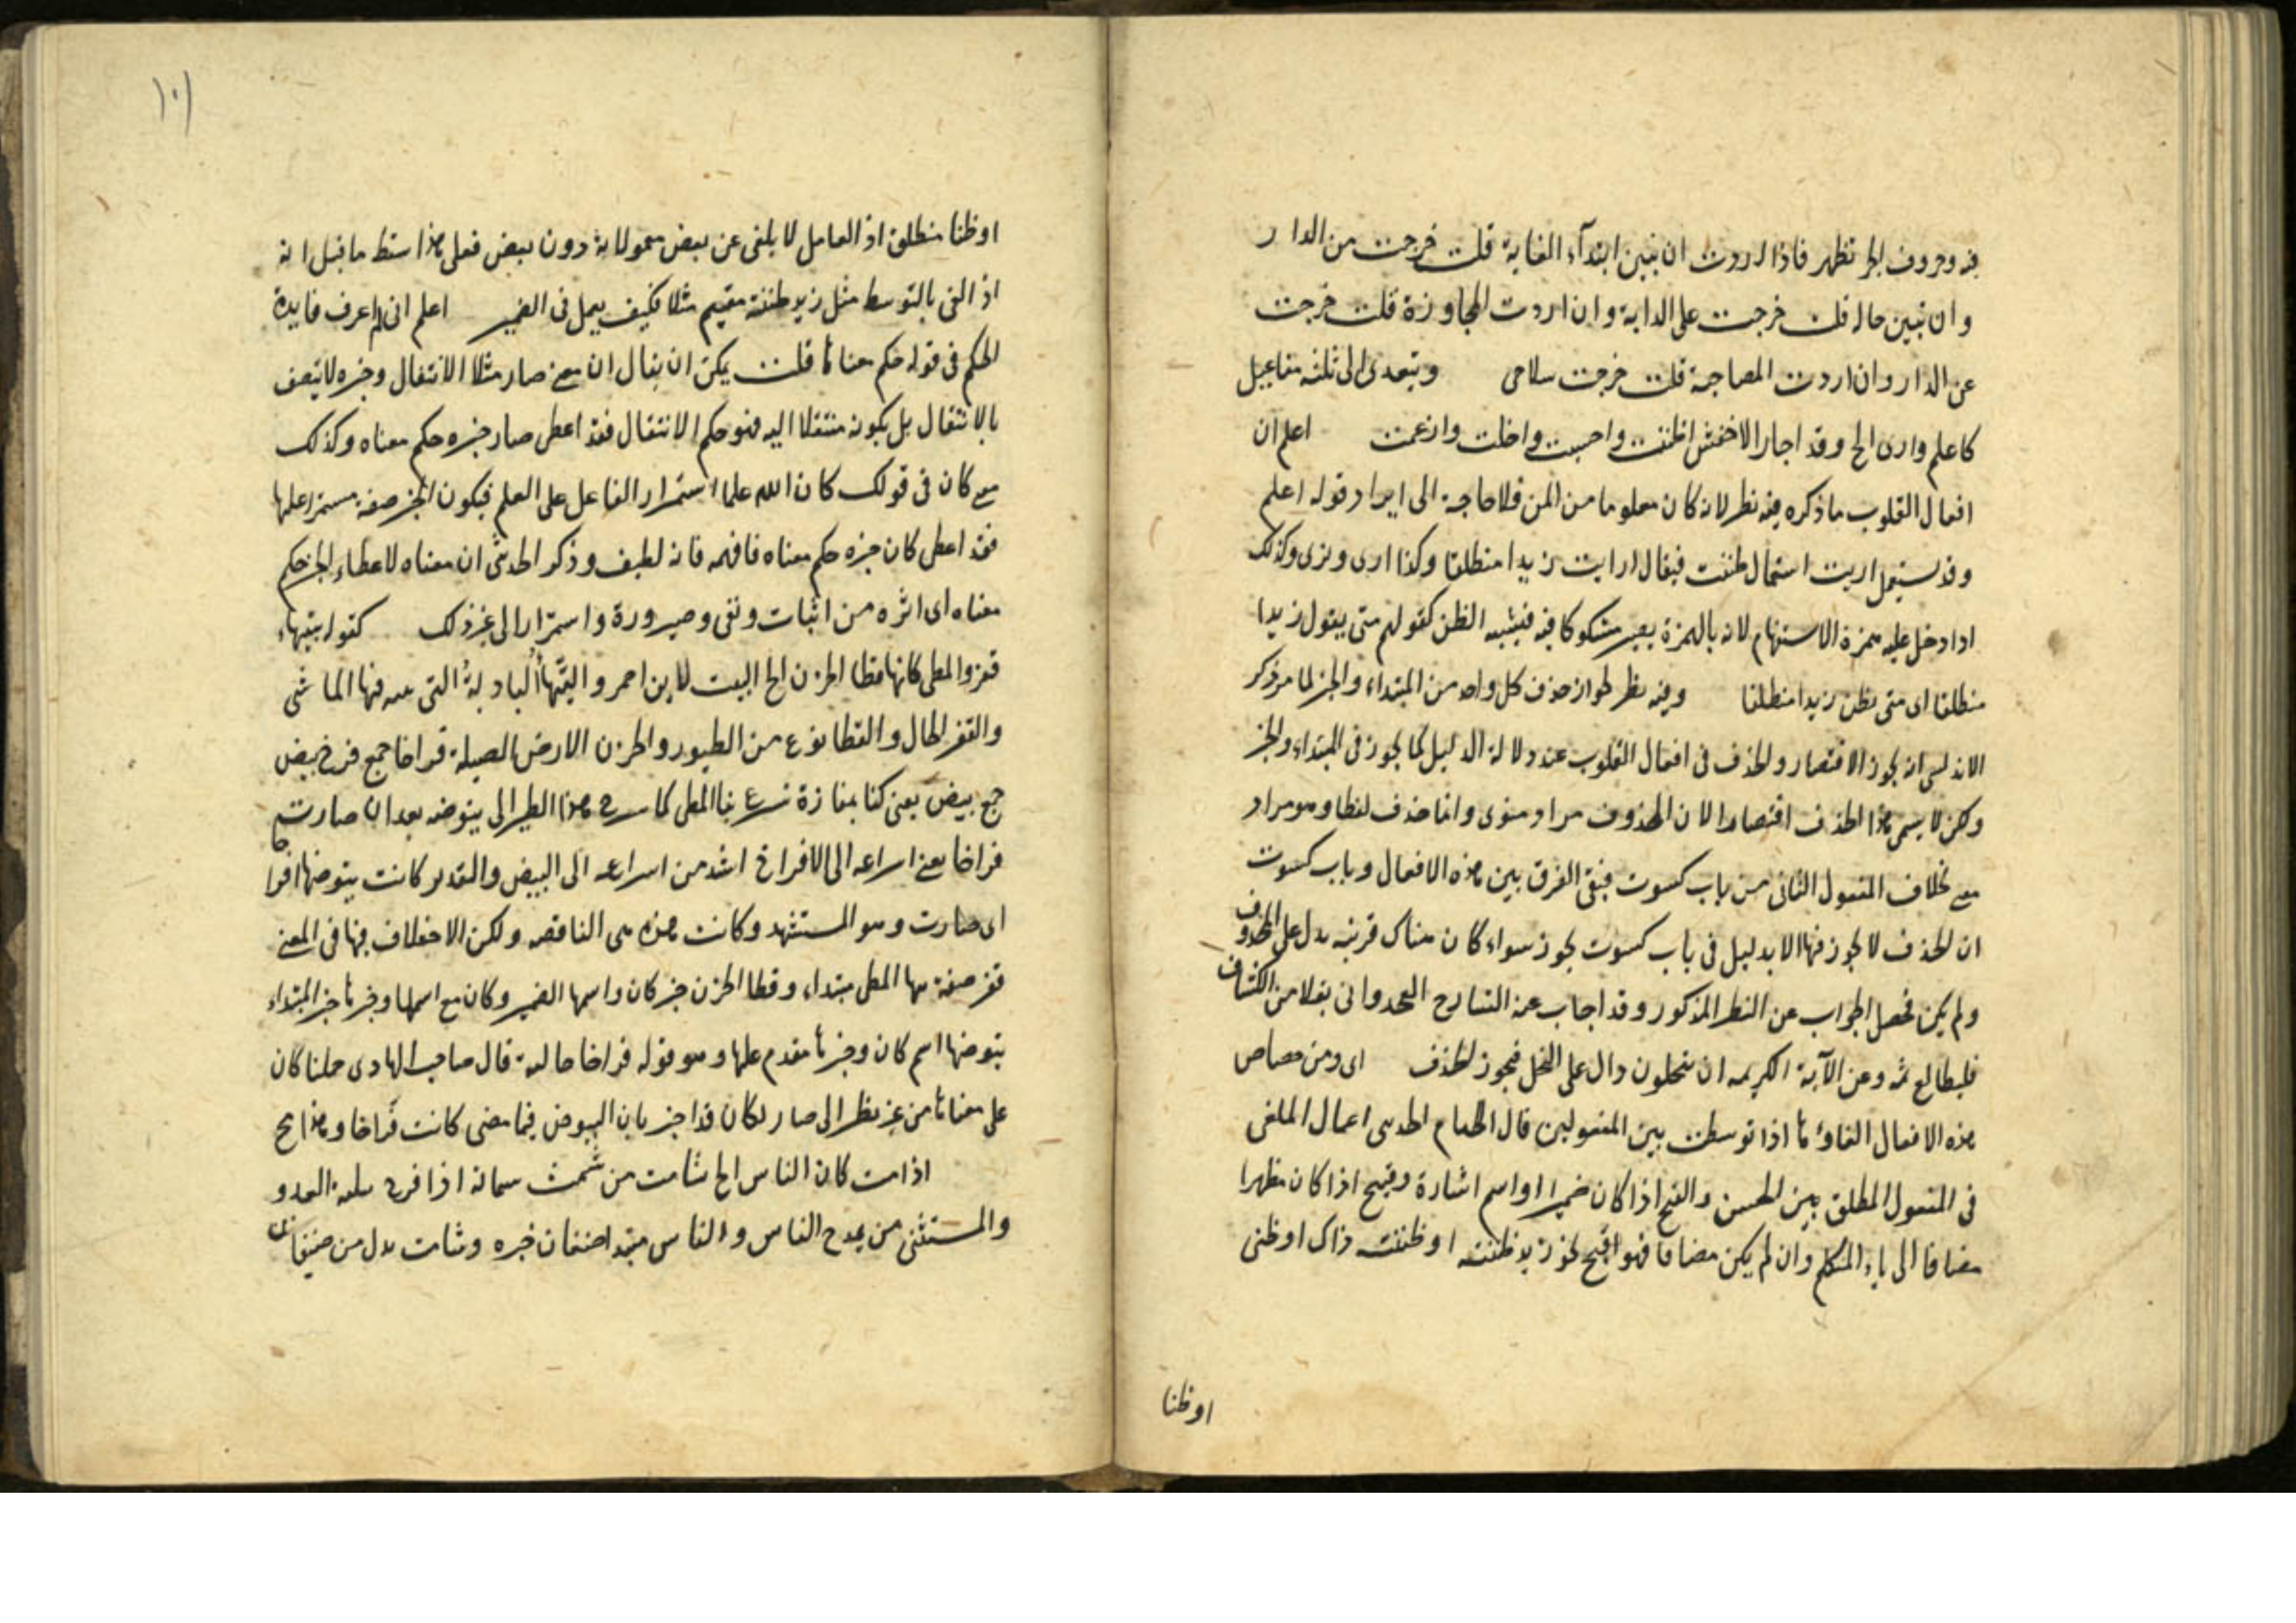 فيه وحروف الجر تظهر فاذا اردت ان تبين ابتدآء الغاية قلت خرجت من الدار
وان تبين حاله قلت خرجت على الدابة وان اردت المجاوزة قلت خرجت
عن الدار وان اردت المصاحبة قلت خرجت بسلاحى ويتعدى الى ثلثه مفاعيل
كاعلم وارى الخ وقد اجاز الاخفش اظننت واحسبت واخلت وازعمت اعلم ان
افعال القلوب ماذكره فيه نظر لانه كان معلوما من المتن فلا حاجة الى ايراد قوله اعلم
وقد يستعمل اريت استعمال ظننت فيقال ارايت زيدا منطلقا وكذا ارى ونرى وكذلك
اذا دخل عليه همزة الاستفهام لانه بالهمزة يصير مشكوكا فيه فيشبه الظن كقولهم متى يقول زيدا
منطلقا اى متى تظن زيدا منطلقا وفيه نظر لجواز حذف كل واحد من المبتداء والخبر لما مر ذكر
الاندلسى انه يجوز الاقتصار والحذف فى افعال القلوب عند دلالة الدليل كما يجوز فى المبتداء والخبر
ولكن لا يسمى هذا الحذف اقتصارا لان المحذوف مراد منوى وانما حذف لفظا وهو مراد
معنى بخلاف المفعول الثانى من باب كسوت فبقى الفرق بين هذه الافعال وباب كسوت
ان الحذف لا يجوز فيها الا بدليل فى باب كسوت يجوز سواء كان هناك قرينه يدل على المحذوف
ولم يكن يحصل الجواب عن النظر المذكور وقد اجاب عنه الشارح العجدوانى نقلا من الكشاف
فليطالع ثمه وعن الآية الكريمه ان يبخلون دال على البخل فيجوز الحذف اى ومن خصايص
هذه الافعال الغاؤها اذا توسطت بين المفعولين قال الامام الحديثى اعمال الملغى
فى المفعول المطلق بين الحسن والقبح اذا كان ضميرا او اسم اشارة وقبيح اذا كان مظهرا
مضافا الى ياء المتكلم وان لم يكن مضافا فهو اقبح نحو زيد ظننته او ظننت ذاك او ظنى
او ظنا
١٠١
او ظنا منطلق اذ العامل لا يلغى عن بعض معمولاته دون بعض فعلى هذا سقط ما قيل انه
اذ الغى بالتوسط مثل زيد ظننته مقيم مثلا فكيف يعمل فى الضمير اعلم انى لم اعرف فايدة
الحكم فى قوله حكم معناها قلت يمكن ان يقال ان معنى صار مثلا الانتقال وخبره لا يتصف
بالانتقال بل يكون منتقلا اليه فهو حكم الانتقال فقد اعطى صار خبره حكم معناه وكذلك
معنى كان فى قولك كان الله علما استمرار الفاعل على العلم فيكون الخبر صفة مستمرا عليها
فقد اعطى كان خبره حكم معناه فافهمه فانه لطيف وذكر الحديثى ان معناه لاعطاء الخبر حكم
معناه اى اثره من اثبات ونفى وصيرورة واستمرار الى غير ذلك كقوله بتيهاء
قفر والمطى كانها قطا الحزن الخ البيت لابن احمر والتيهاء البادية التى فيها الماشى
والقفر الخال والقطا نوع من الطيور والحزن الارض الصلبة فراخا جمع فرخ بيض
جمع بيض يعنى كنا بمفازة تسرع بنا المطى كما يسرع هذا الطير الى بيوضه بعد ان صارت
فراخا يعنى اسراعه الى الافراخ اشد من اسراعه الى البيض والتقدير كانت بيوضها فراخا
اى صارت وهو المستشهد وكانت هذه هى الناقصه ولكن الاختلاف فيها فى المعنى
قفر صفة تيها المطى مبتداء وقطا الحزن خبر كان واسمها الضمير وكان مع اسمها وخبرها خبر المبتداء
بيوضها اسم كان وخبرها مقدم عليها وهو قوله فراخا حالية قال صاحب الهادى حملنا كان
على معناها من غير نظر الى صار لكان قد اخبر بان البيوض فيما مضى كانت فراخا وهذا مح
اذا مت كان الناس الخ شامت من شمت شماتة اذا فرح ببلية العدو
والمستثنى من يمدح الناس والناس مبتدا صنفان خبره وشامت بدل من صنفان